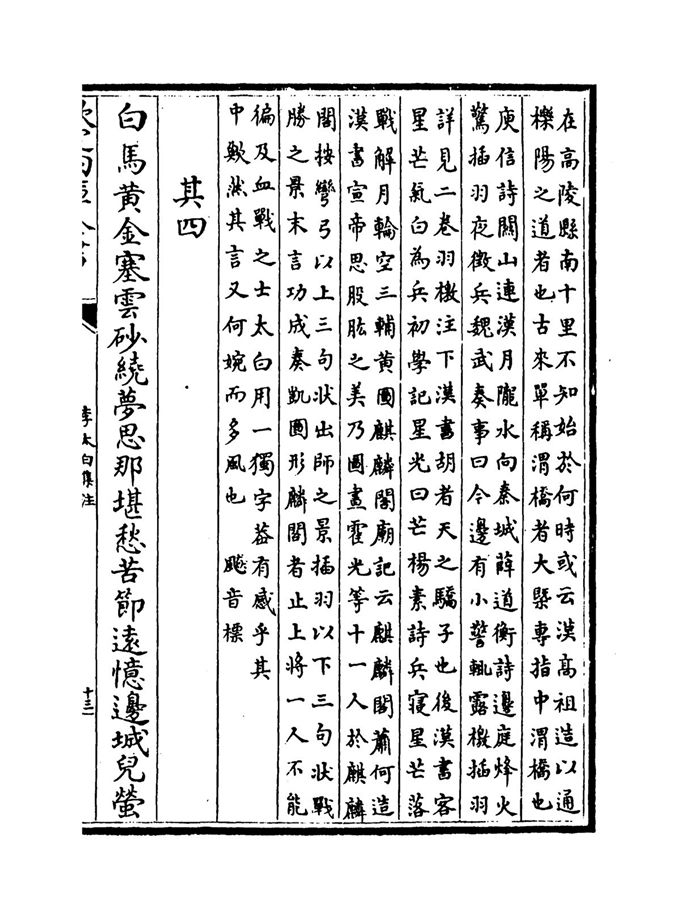 在高陵縣南十里不知始於何時或云漢高祖造以通
櫟陽之道者也古來單稱渭橋者大槩專指中渭橋也
庾信詩關山連漢月隴水向秦城薛道衡詩邊庭烽火
驚插羽夜徵兵魏武奏事曰今邊有小警輒露檄插羽
詳見二卷羽檄注下漢書胡者天之驕子也後漢書客
星芒氣白為兵初學記星光曰芒楊素詩兵寢星芒落
戰解月輪空三輔黄圖麒麟閣廟記云麒麟閣蕭何造
漢書宣帝思股肱之美乃圖畫霍光等十一人於麒麟
閣按彎弓以上三句狀出師之景插羽以下三句狀戰
勝之景末言功成奏凱圖形麟閣者止上將一人不能
徧及血戰之士太白用一獨字葢有感乎其
中歎然其言又何婉而多風也　飈音標
其四
白馬黄金塞雲砂繞夢思那堪愁苦節遠憶邊城兒螢
李太白集注
十三